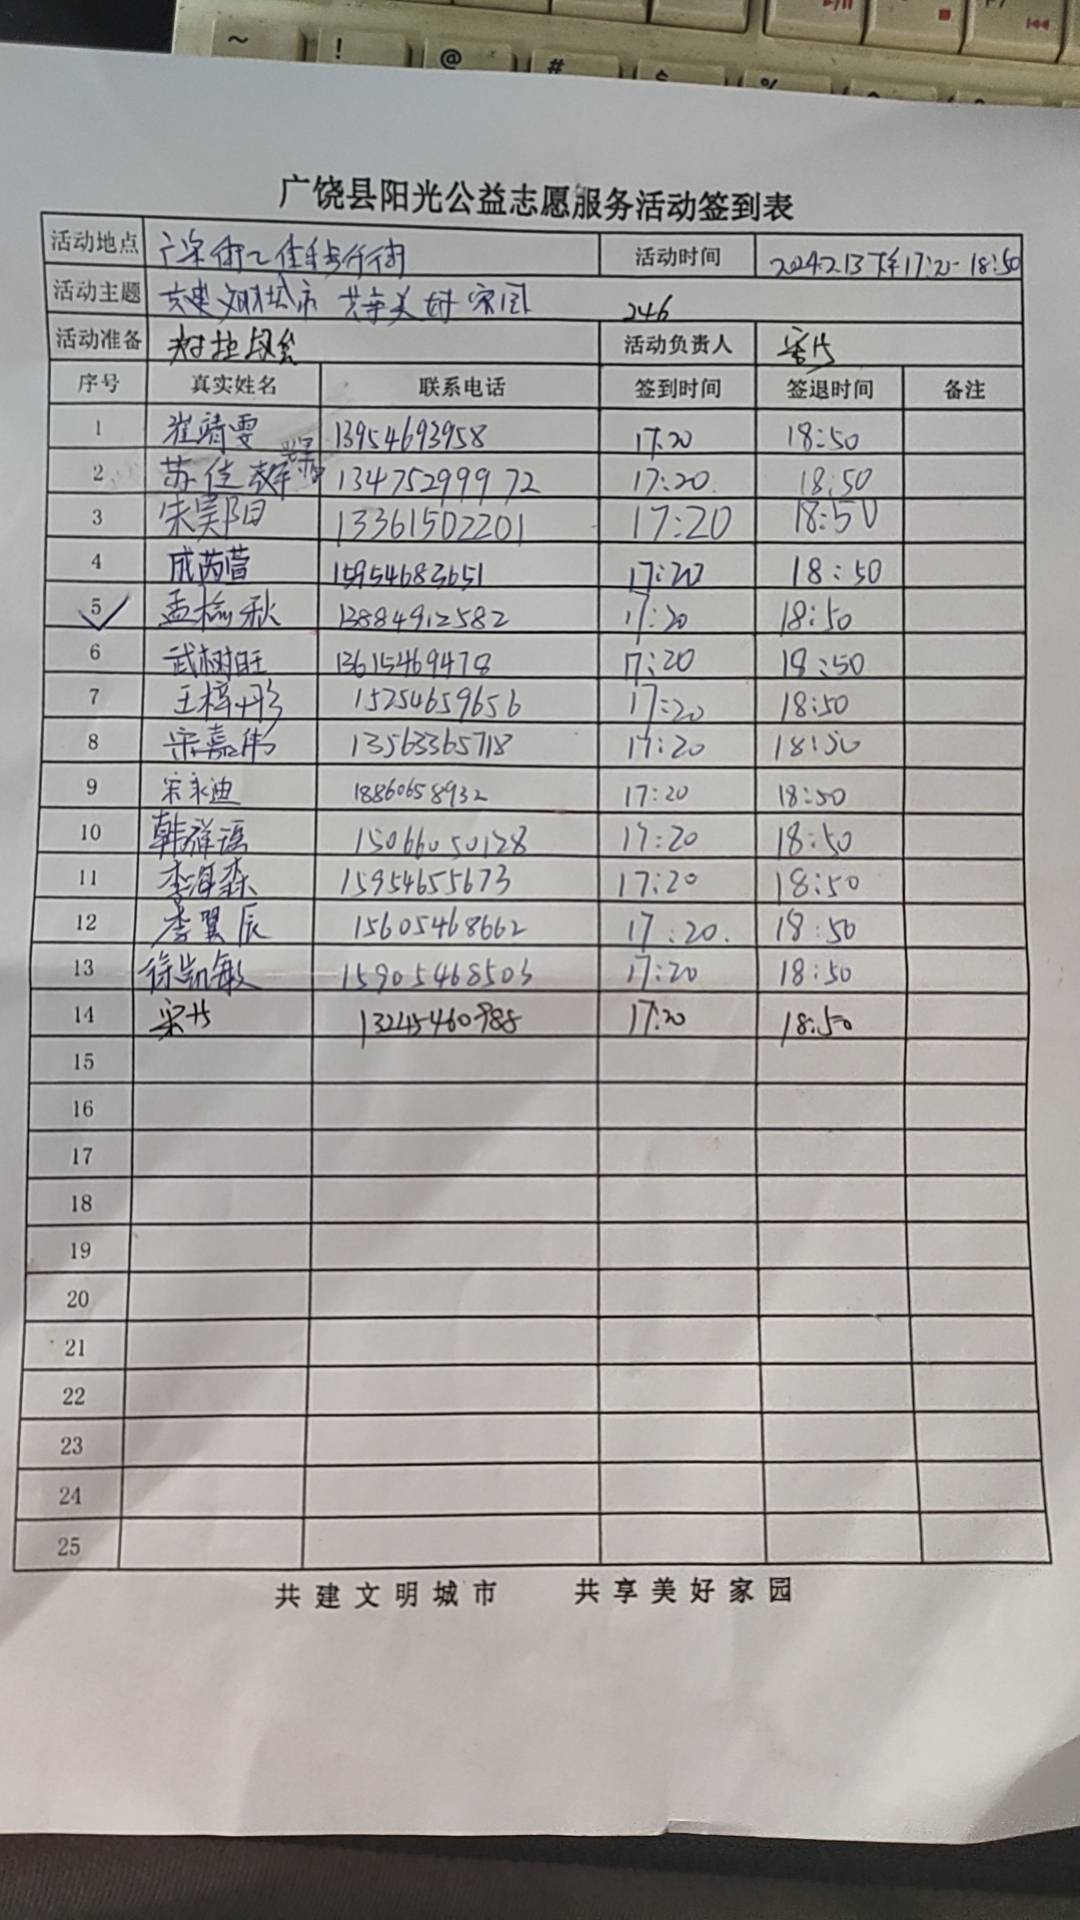 ~ ! @ # $ %
广饶县阳光公益志愿服务活动签到表
活动地点 活动时间 2024.2.13 下午17:20-18:50
活动主题 共建文明城市 共享美好家园 246
活动准备 活动负责人
序号 真实姓名 联系电话 签到时间 签退时间 备注
1 崔靖雯 13954693958 17:20 18:50
2 苏佳 13475299972 17:20 18:50
3 朱昊阳 13361502201 17:20 18:50
4 成芮萱 15954683651 17:20 18:50
5 孟榆秋 13884912582 17:20 18:50
6 武树旺 13615469478 17:20 18:50
7 王梓彤 15254659656 17:20 18:50
8 宋嘉伟 13563365718 17:20 18:50
9 宋永迪 18860658932 17:20 18:50
10 韩祥瑶 15066050128 17:20 18:50
11 李海森 15954655673 17:20 18:50
12 李翼辰 15605468662 17:20 18:50
13 徐凯敏 15905468503 17:20 18:50
14 13245460988 17:20 18:50
15
16
17
18
19
20
21
22
23
24
25
共建文明城市 共享美好家园